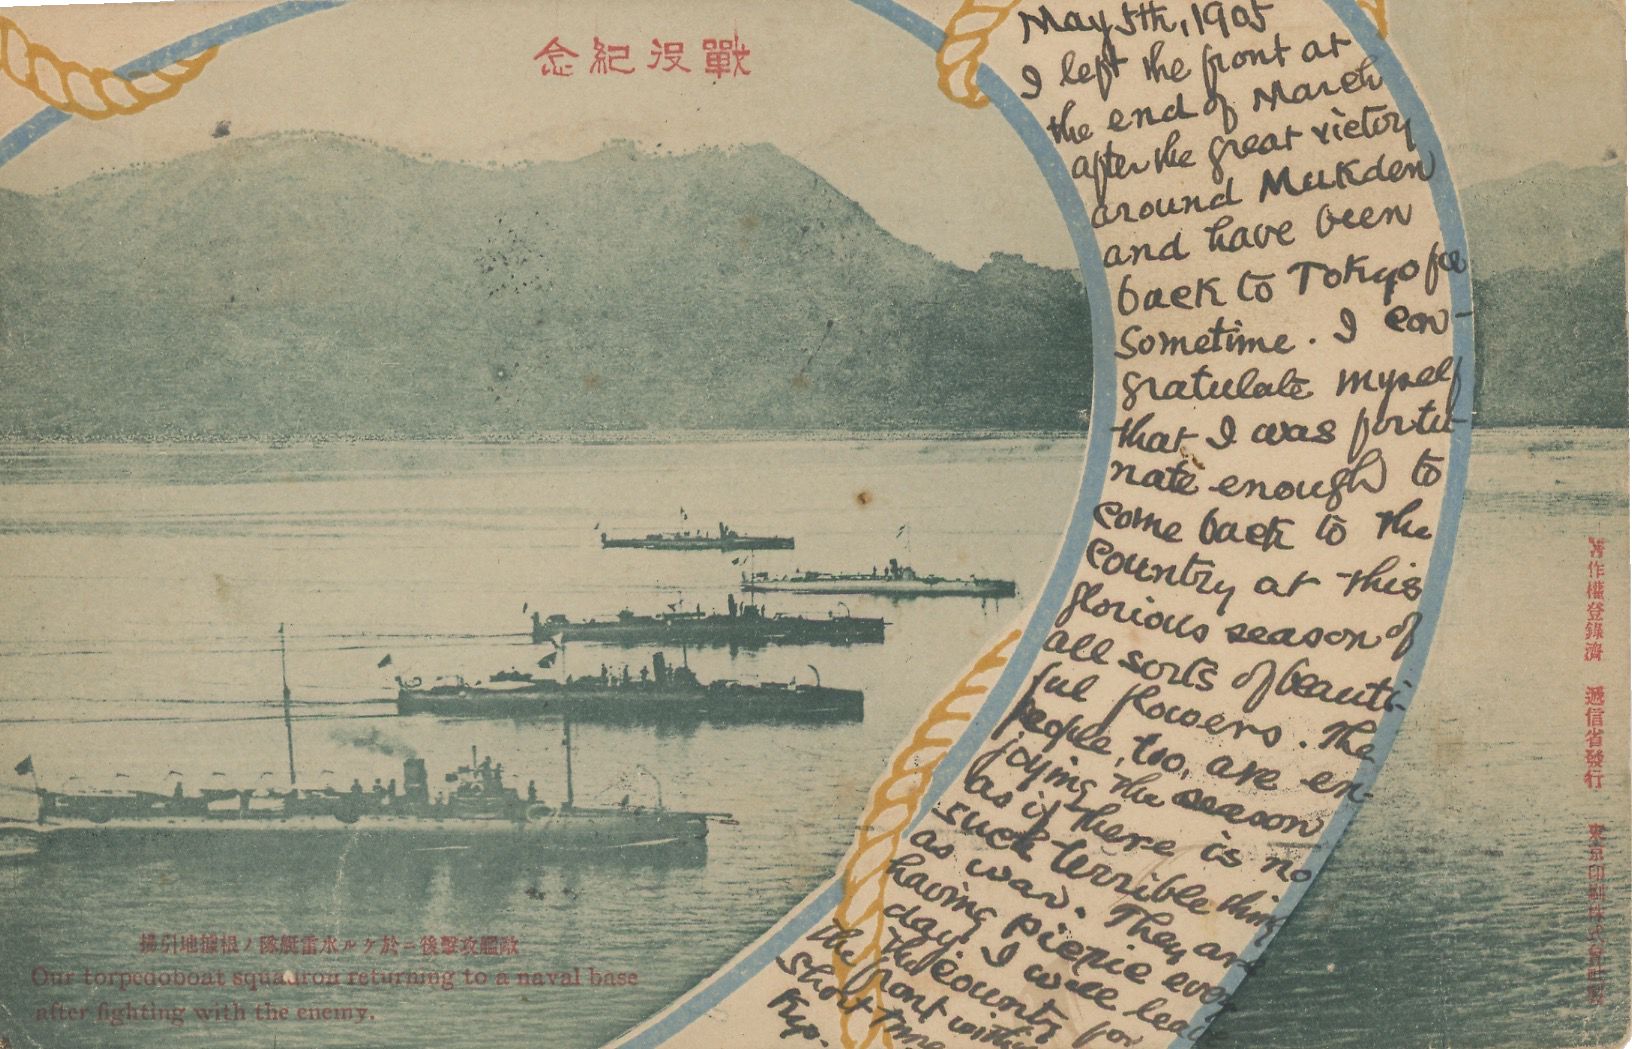 念紀役戰
May 5th, 1905
I left the front at
the end of March
after the great victory
around Mukden
and have been
back to Tokyo for
sometime. I con-
gratulate myself
that I was fortu-
nate enough to
come back to the
country at this
glorious season of
all sorts of beauti-
ful flowers. The
people, too, are en-
joying the season
as if there is no
such terrible thing
as war. They are
having picnic every
day. I will leave
the country for
the front within
short time
Kyo.
掃引地據根ノ隊艇雷水ルケ於ニ後撃攻艦敵
Our torpedoboat squadron returning to a naval base
after fighting with the enemy.
著作權登錄濟 遞信省發行 東京印刷株式會社製